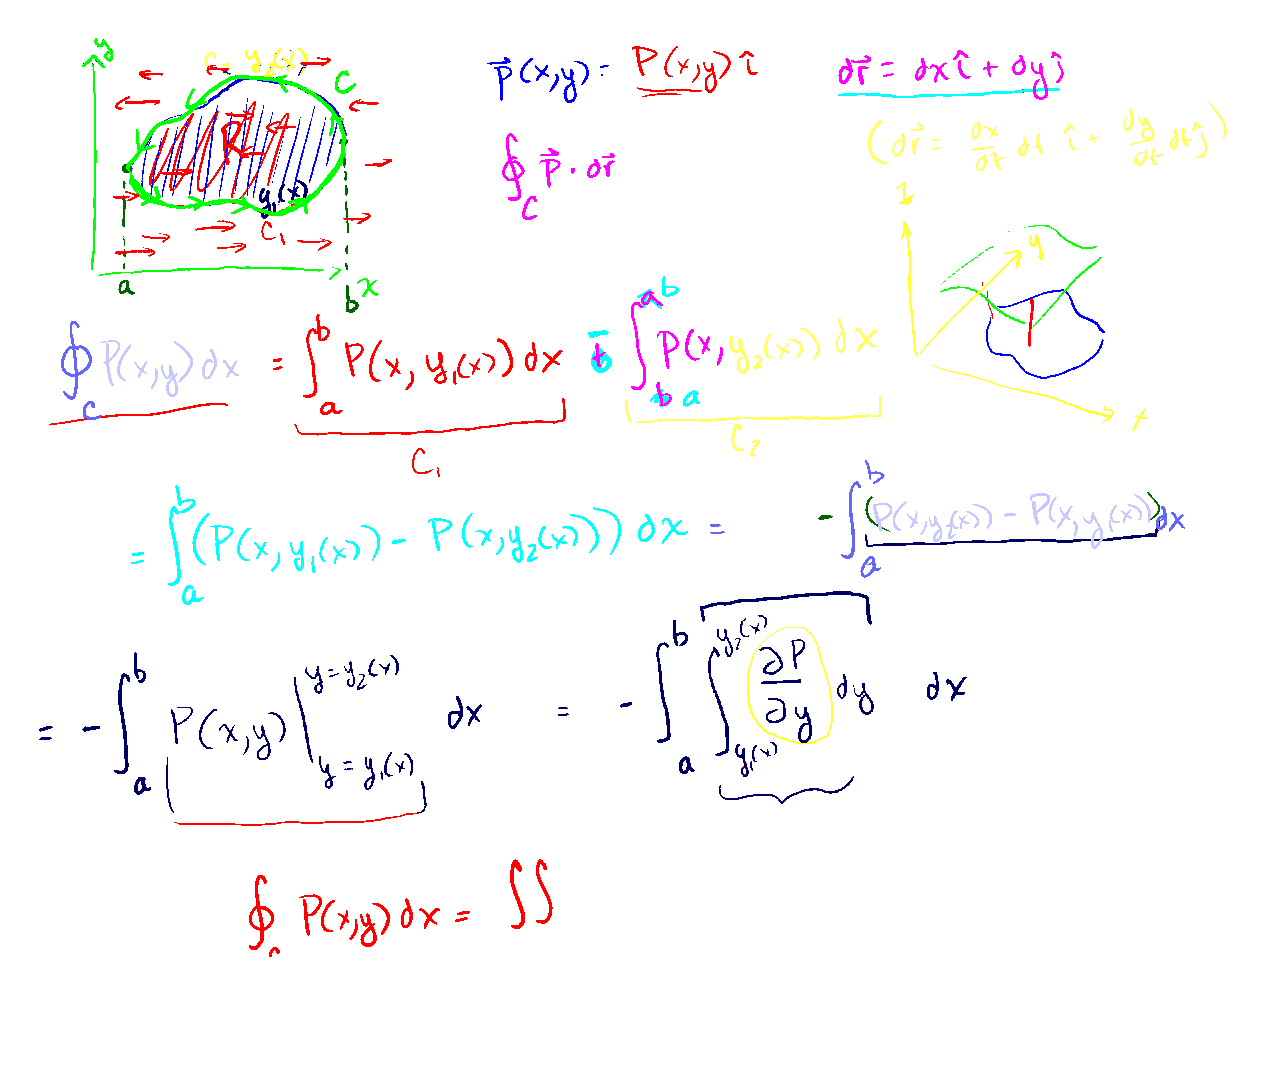 y
C₂ y₂(x)
C
R
y₁(x)
C₁
a b x
p⃗(x,y) = P(x,y) î
dr⃗ = dx î + dy ĵ
(dr⃗ = dx/dt dt î + dy/dt dt ĵ)
∮_C p⃗ · dr⃗
z
y
x
∮_C P(x,y) dx = ∫_a^b P(x, y₁(x)) dx − ∫_a^b P(x, y₂(x)) dx
C₁ C₂
= ∫_a^b (P(x, y₁(x)) − P(x, y₂(x))) dx = − ∫_a^b (P(x, y₂(x)) − P(x, y₁(x))) dx
= − ∫_a^b P(x,y) |_{y = y₁(x)}^{y = y₂(x)} dx = − ∫_a^b ∫_{y₁(x)}^{y₂(x)} ∂P/∂y dy dx
∮_c P(x,y) dx = ∫∫